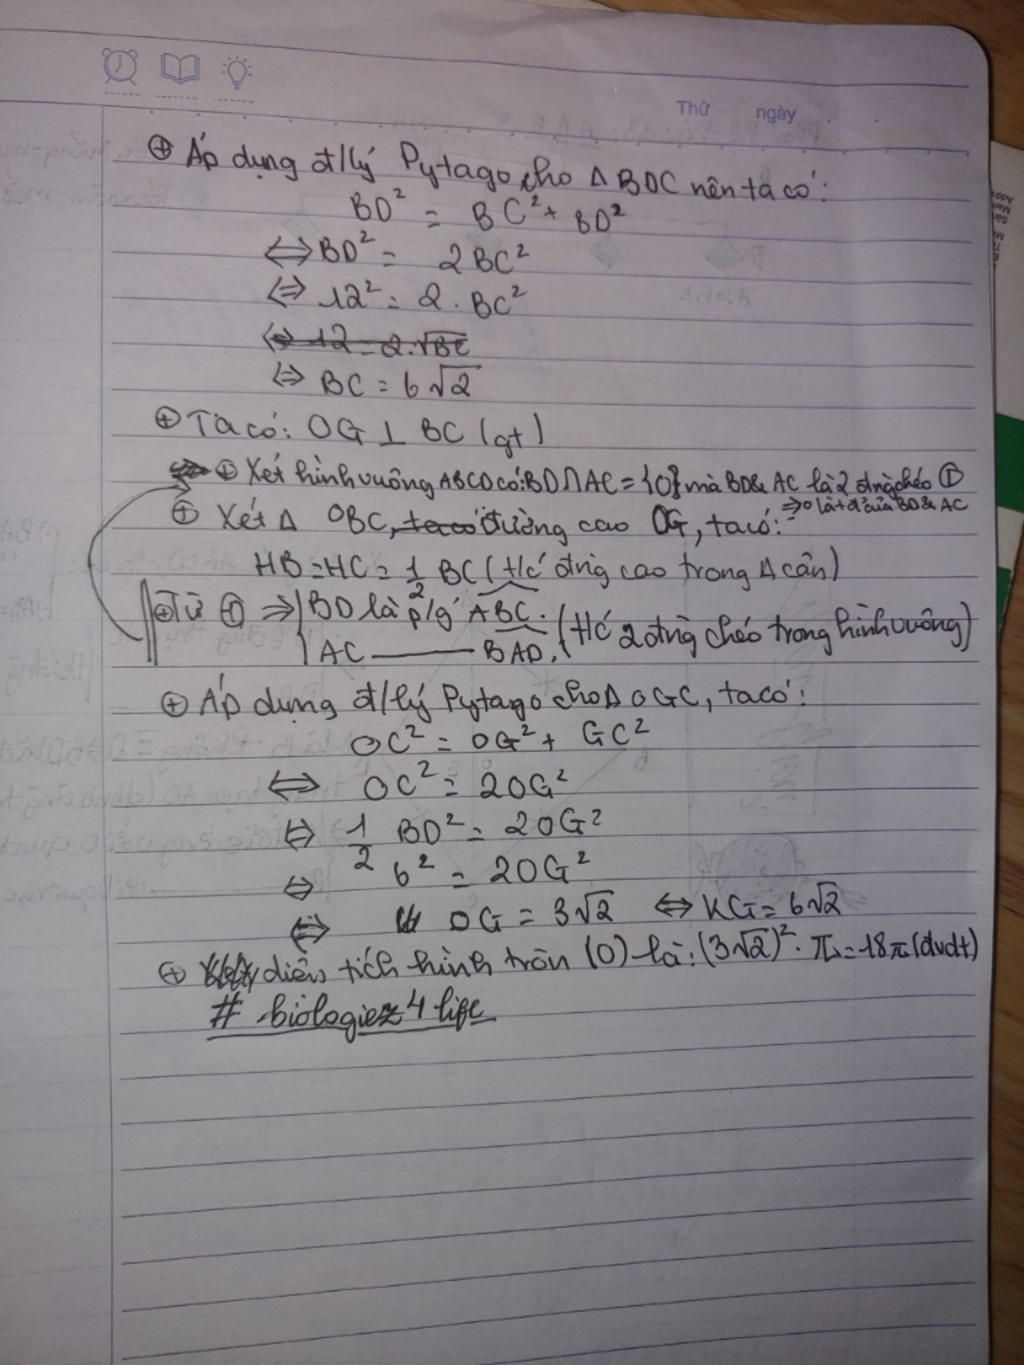 Thứ ngày
⊕ Áp dụng đ/lý Pytago cho Δ BDC nên ta có:
BD² = BC² + BD²
⇔ BD² = 2BC²
⇔ 12² = 2 . BC²
⇔ 12 = 2.√BC
⇔ BC = 6√2
⊕ Ta có: OG ⊥ BC (gt)
⊕ Xét hình vuông ABCD có: BD ∩ AC = {O} mà BD & AC là 2 đng chéo ①
⇒ O là tđ của BD & AC
⊕ Xét Δ OBC, ta có đường cao OG, ta có:
HB = HC = 1/2 BC (t/c đng cao trong Δ cân)
⊕ Từ ① ⇒ BD là p/g ABC. (t/c 2 đng chéo trong hình vuông)
AC —— BAD.
⊕ Áp dụng đ/lý Pytago cho Δ OGC, ta có:
OC² = OG² + GC²
⇔ OC² = 2OG²
⇔ 1/2 BD² = 2OG²
⇔ 6² = 2OG²
⇔ OG = 3√2 ⇔ KG = 6√2
⊕ diện tích hình tròn (O) là: (3√2)² . π = 18π (đvdt)
# biologiez4life